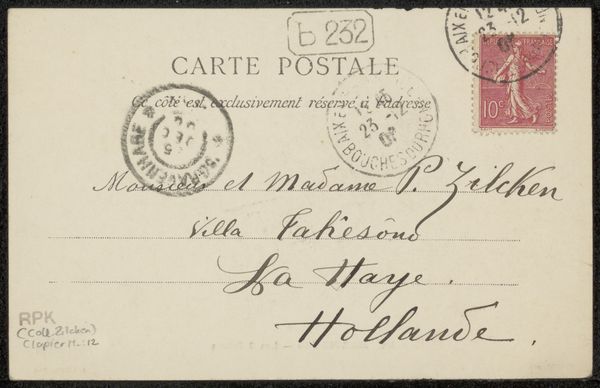 b 232
CARTE POSTALE
Ce côté est exclusivement réservé à l'adresse
AIX EN
12
23 -12
BOUCHES DU RHONE
23 -12
RÉPUBLIQUE FRANÇAISE
10c
'SGRAVENHAGE
DEC
Monsieur et Madame P. Zilcken
Villa Fahêsôno
La Haye.
Hollande.
RPK
(Coll. Zilcken)
Clapier M.: 12